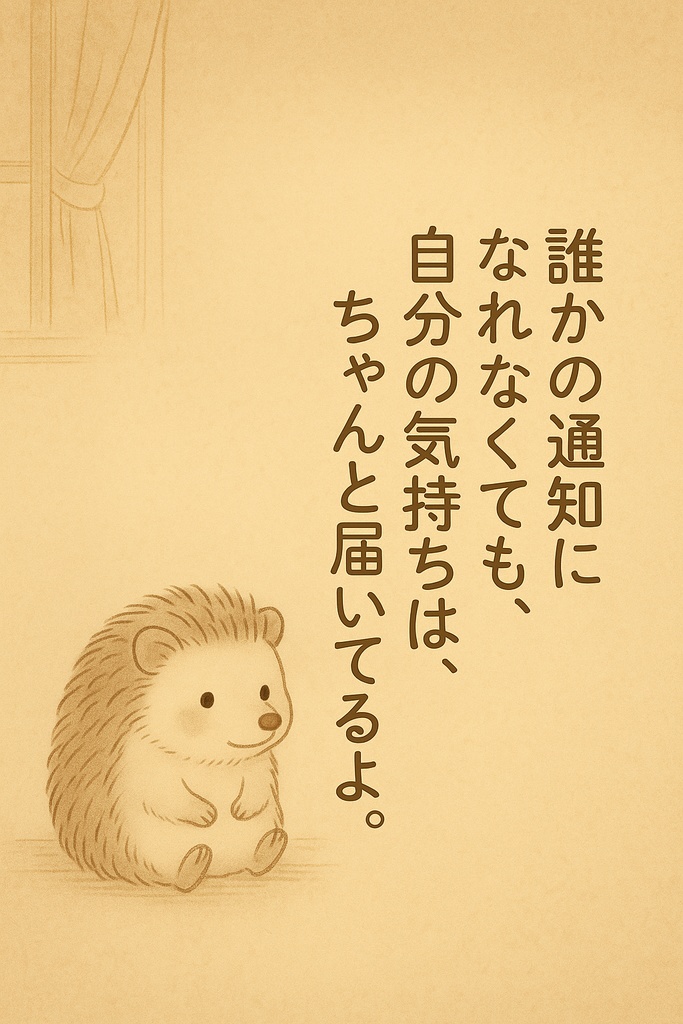 誰かの通知に
なれなくても、
自分の気持ちは、
ちゃんと届いてるよ。